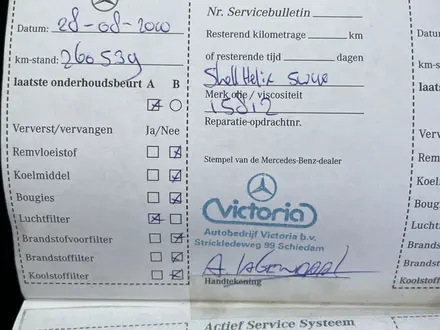 Datum: 28-08-2000
km-stand: 260539
laatste onderhoudsbeurt A B
Ververst/vervangen Ja/Nee
Remvloeistof
Koelmiddel
Bougies
Luchtfilter
Brandstofvoorfilter
Brandstoffilter
Koolstoffilter
Nr. Servicebulletin
Resterend kilometrage km
of resterende tijd dagen
Shell Helix 5w40
Merk olie / viscositeit
15812
Reparatie-opdrachtnr.
Stempel van de Mercedes-Benz-dealer
Victoria
Autobedrijf Victoria b.v.
Strickledeweg 99 Schiedam
Handtekening
Actief Service Systeem
Datum
km-stan
laatste
Ververs
Remvlo
Koelmi
Bougie
Luchtfi
Brandst
Brandsto
Koolstof